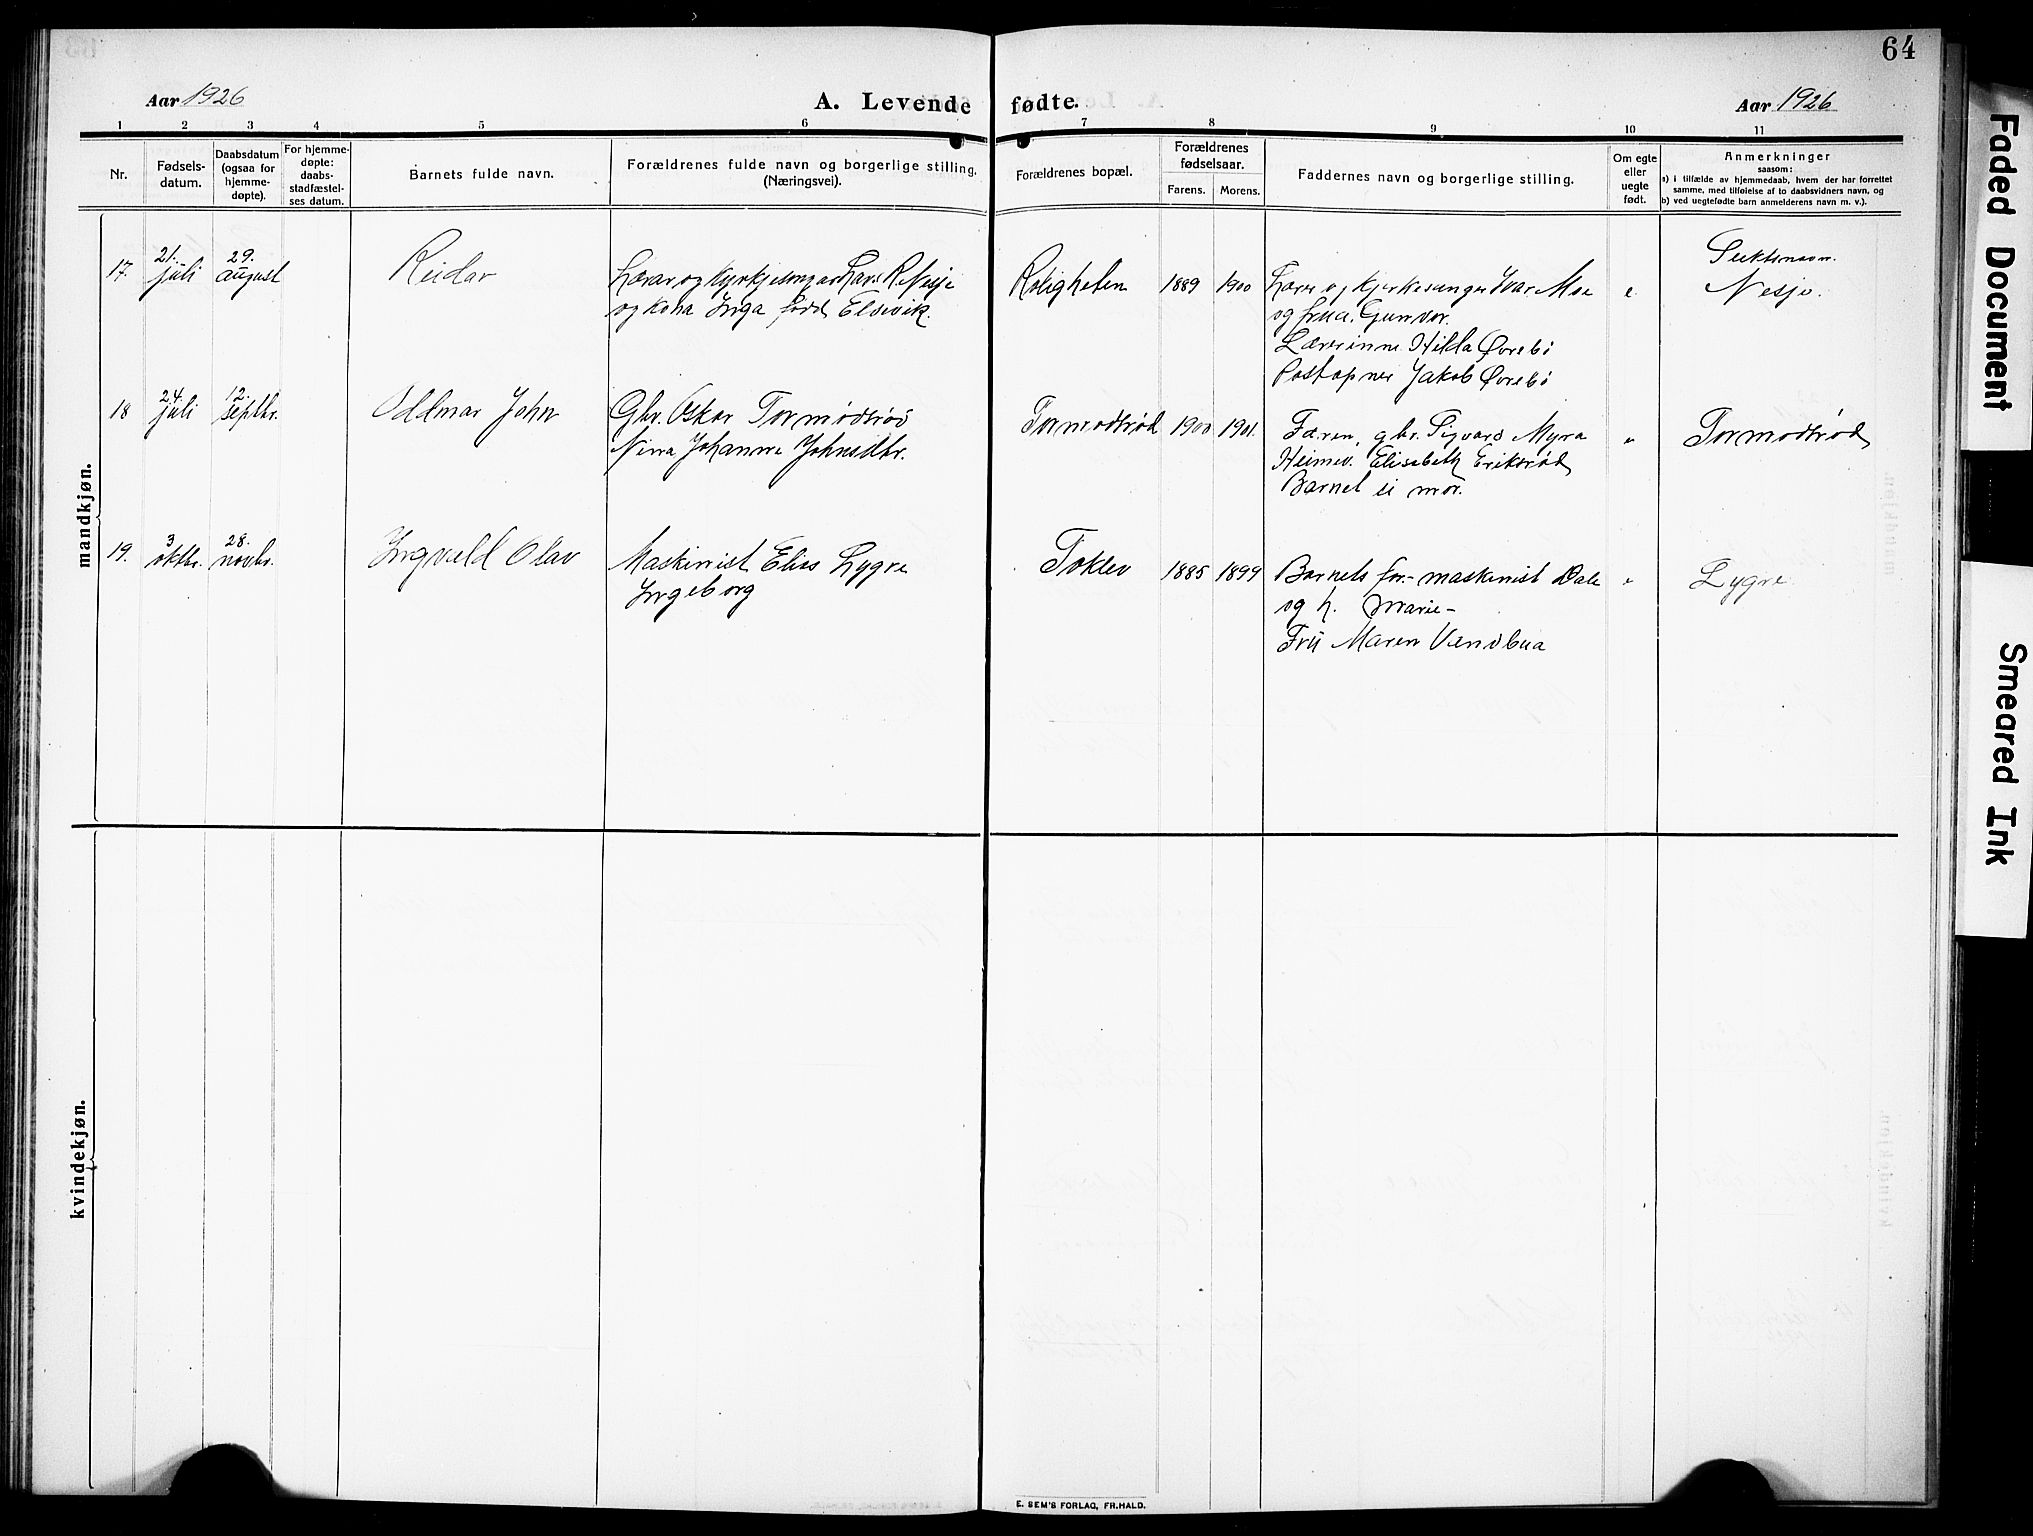 64
Aar 1926
A. Levende fødte.
Aar 1926
1 2 3 4 5 6 7 8 9 10 11
Nr.
Fødsels-
datum.
Daabsdatum
(ogsaa for
hjemme-
døpte).
For hjemme-
døpte:
daabs-
stadfæstel-
ses datum.
Barnets fulde navn.
Forældrenes fulde navn og borgerlige stilling.
(Næringsvei).
Forældrenes bopæl.
Forældrenes
fødselsaar.
Farens. Morens.
Faddernes navn og borgerlige stilling.
Om egte
eller
uegte
født.
Anmerkninger
saasom:
a) i tilfælde av hjemmedaab, hvem der har forrettet
samme, med tilføielse av to daabsvidners navn, og
b) ved uegtefødte barn anmelderens navn m. v.).
mandkjøn.
17.
21.
juli
29.
august
Reidar
Lærar og kyrkjesongar Lars R Nesje
og kona Inga født Elvevik.
Roligheten
1889 1900
Lærer og kjerkesanger Ivar Moe
og frue. Gunvor.
Lærerinne Hilda Øvrebø
Postopner Jakob Øvrebø
e.
Slektsnavn.
Nesje.
18
24.
juli
12.
septbr.
Oddmar John
Gbr. Oskar Tormodsrød
Nina Johanne Johnsdtr.
Tormodsrød
1900 1901.
Faren, gbr. Sigvard Myra
Heimev. Elisabeth Eriksrød
Barnet ei mor.
"
Tormodsrød
19.
3
oktbr.
28.
novbr.
Ingvald Olav
Maskinist Elias Lygre
Ingeborg
Toklev
1885 1899
Barnets for.- maskinist Dale
og h. Marie-
Frü Maren Vendbua
"
Lygre
kvindekjøn.
E. SEM'S FORLAG, FR.HALD.
Faded Document
Smeared Ink